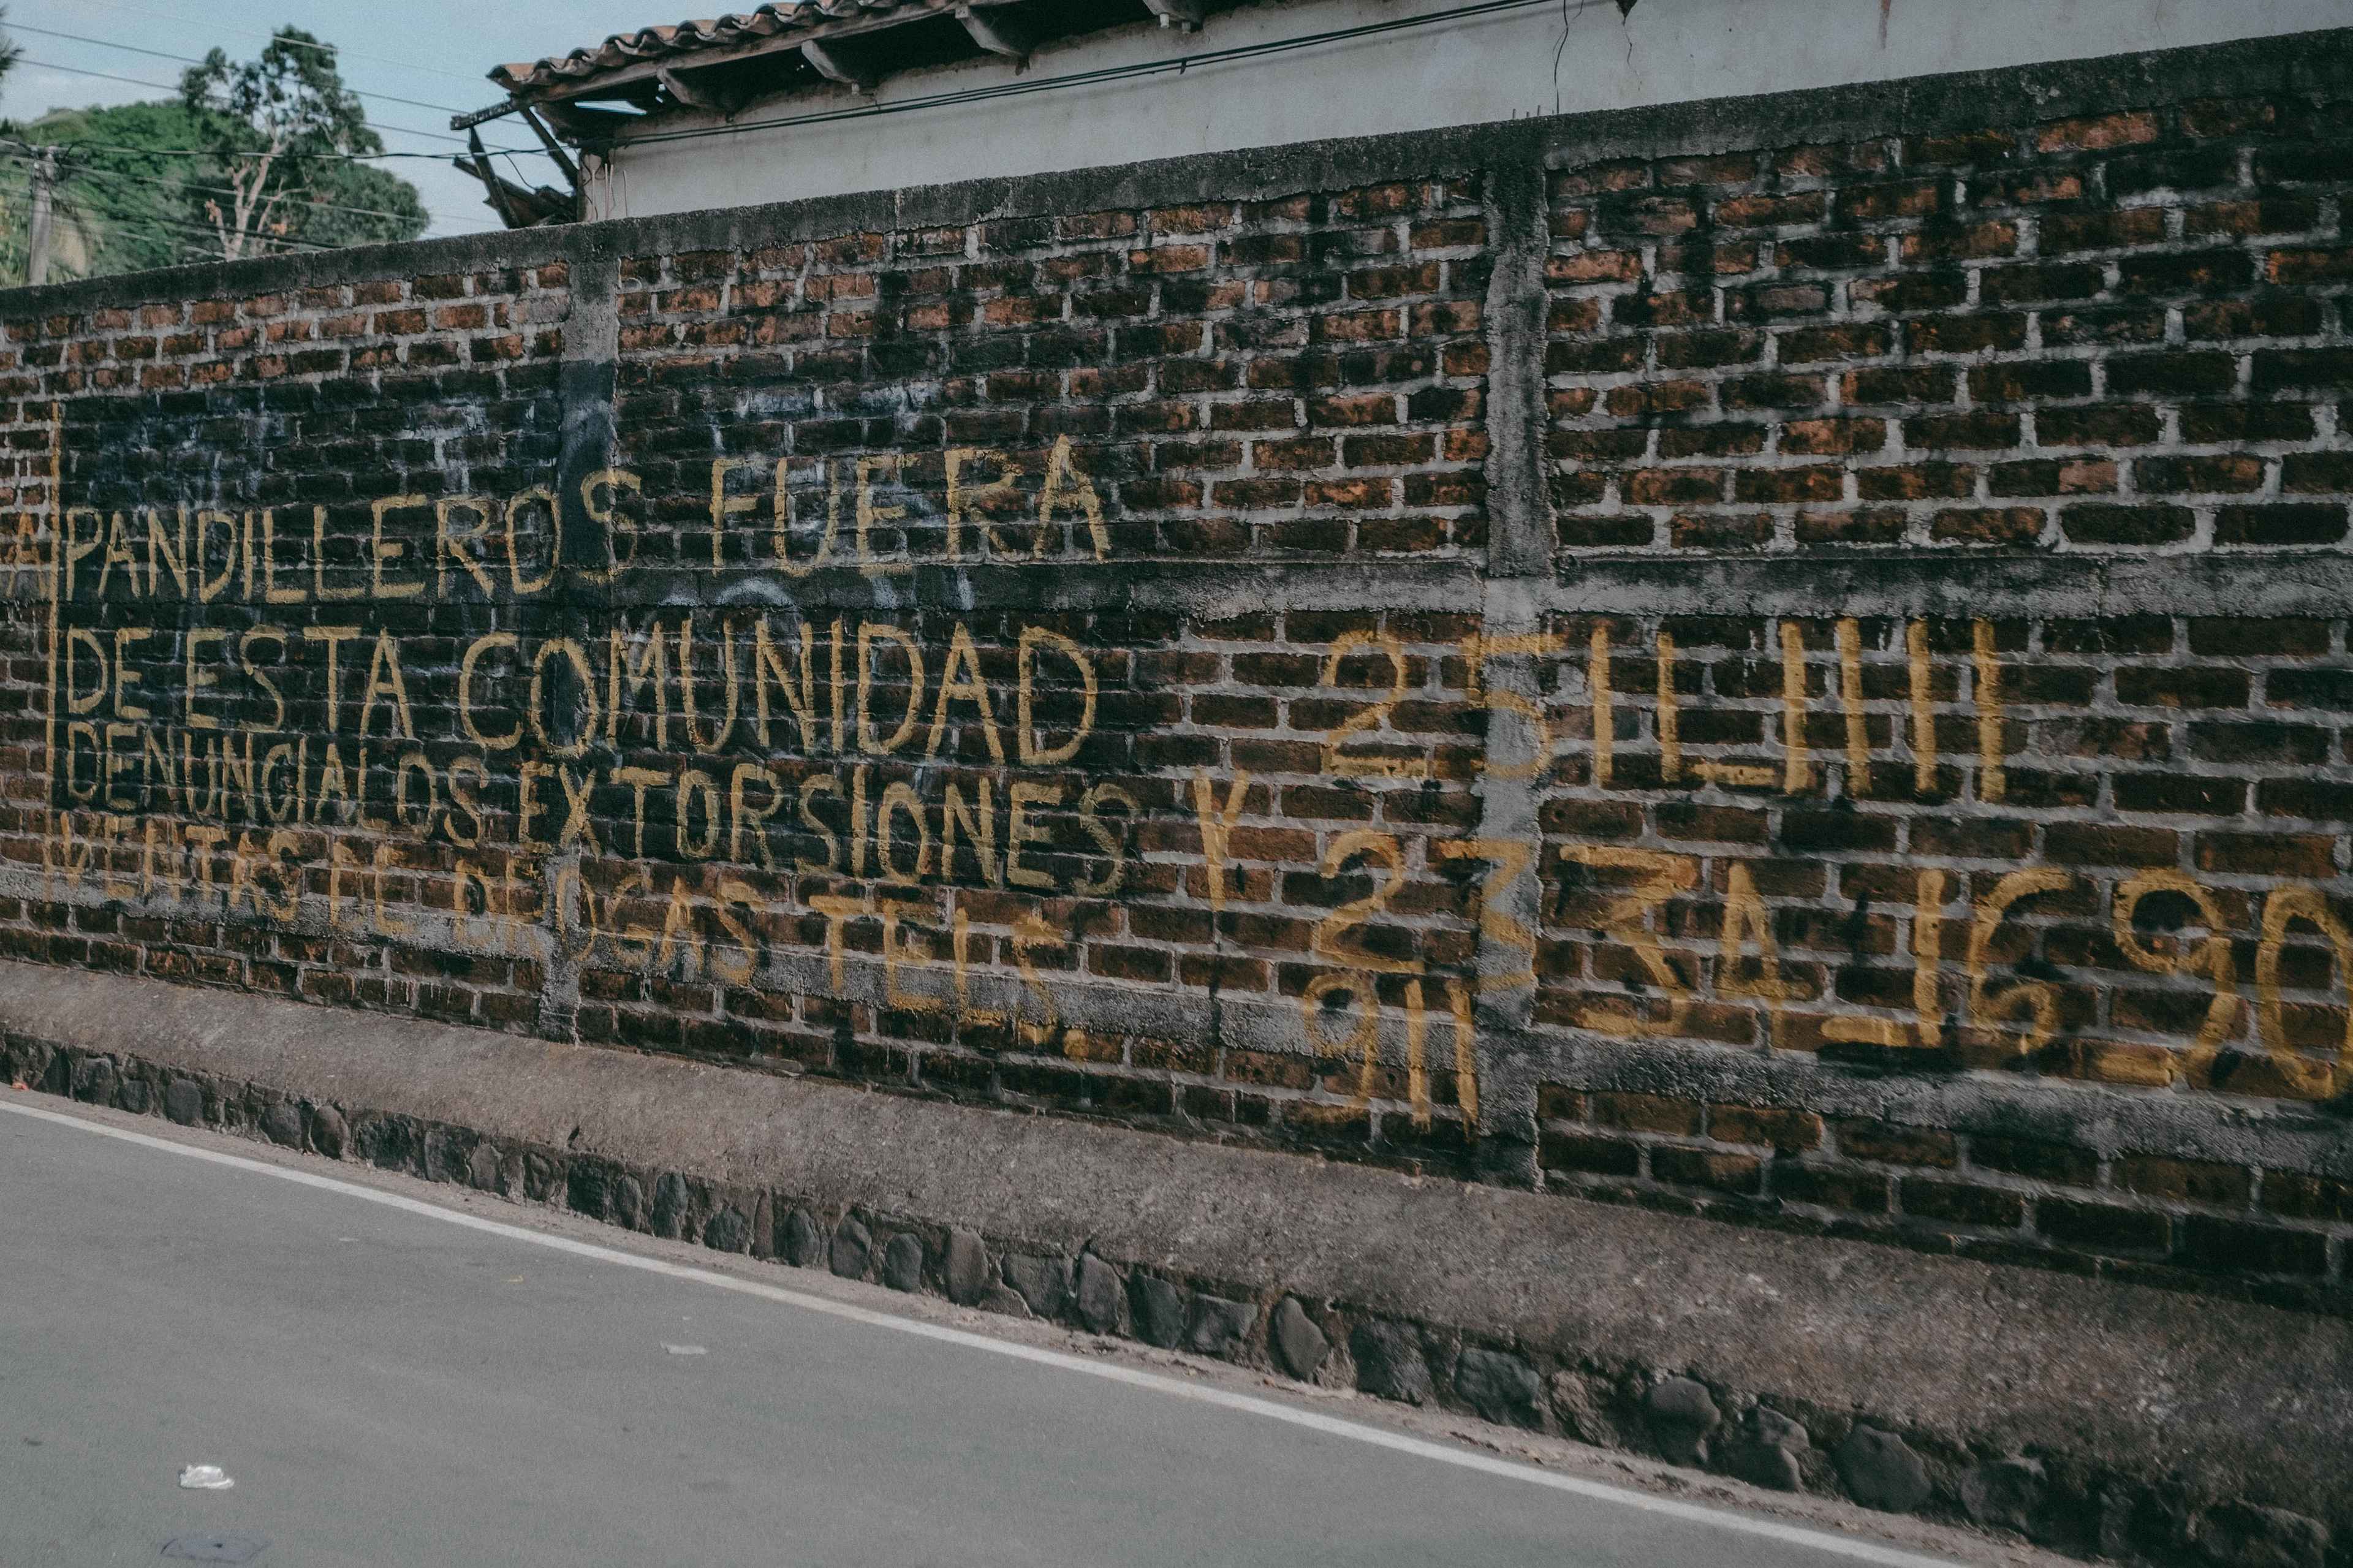 A
PANDILLEROS FUERA
DE ESTA COMUNIDAD
DENUNCIALOS EXTORSIONES Y
VENTAS DE DROGAS TELS.
2511_1111
2334_1690
911